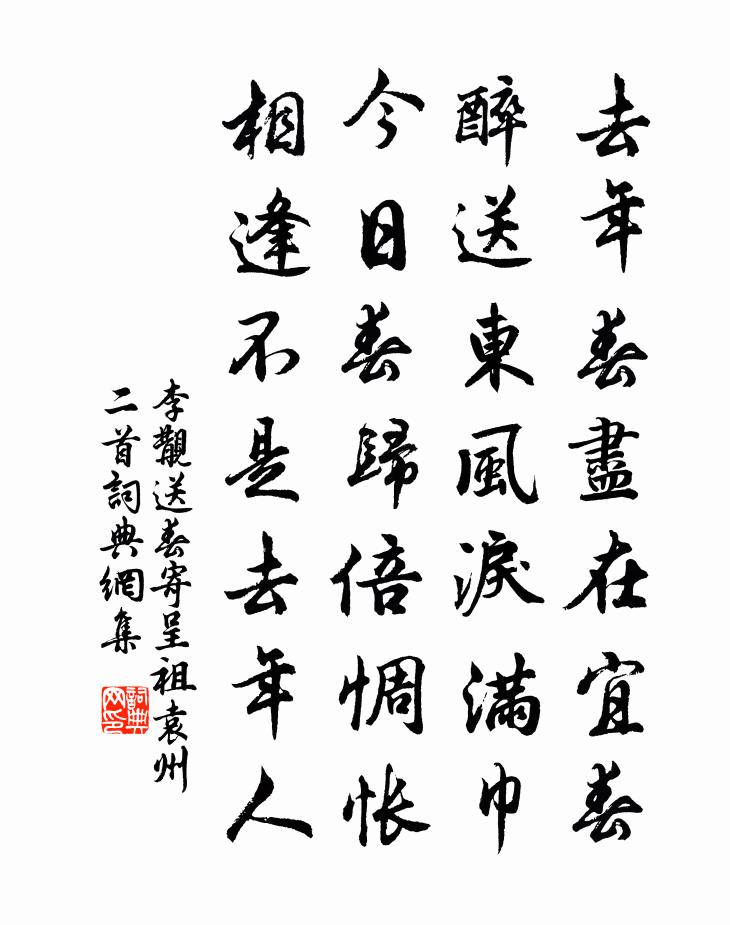 去年春盡在宜春
醉送東風淚滿巾
今日春歸倍惆悵
相逢不是去年人
李覯送春寄呈祖袁州
二首詞典網集
詞典网印